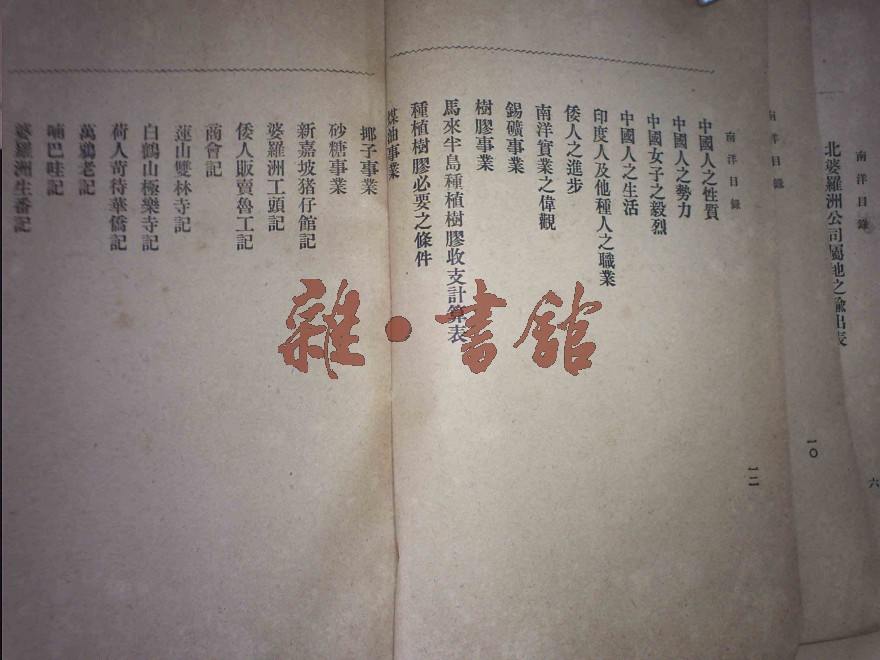 南洋目錄
六
北婆羅洲公司屬地之輸出表
南洋目錄
一〇
南洋目錄
一二
中國人之性質
中國人之勢力
中國女子之毅烈
中國人之生活
印度人及他種人之職業
倭人之進步
南洋實業之偉觀
錫礦事業
樹膠事業
馬來半島種植樹膠收支計算表
種植樹膠必要之條件
煤油事業
揶子事業
砂糖事業
新嘉坡猪仔館記
婆羅洲工頭記
倭人販賣魯工記
商會記
蓮山雙林寺記
白鶴山極樂寺記
荷人苛待華僑記
萬鴉老記
喃巴哇記
婆羅洲生番記
雜·書館